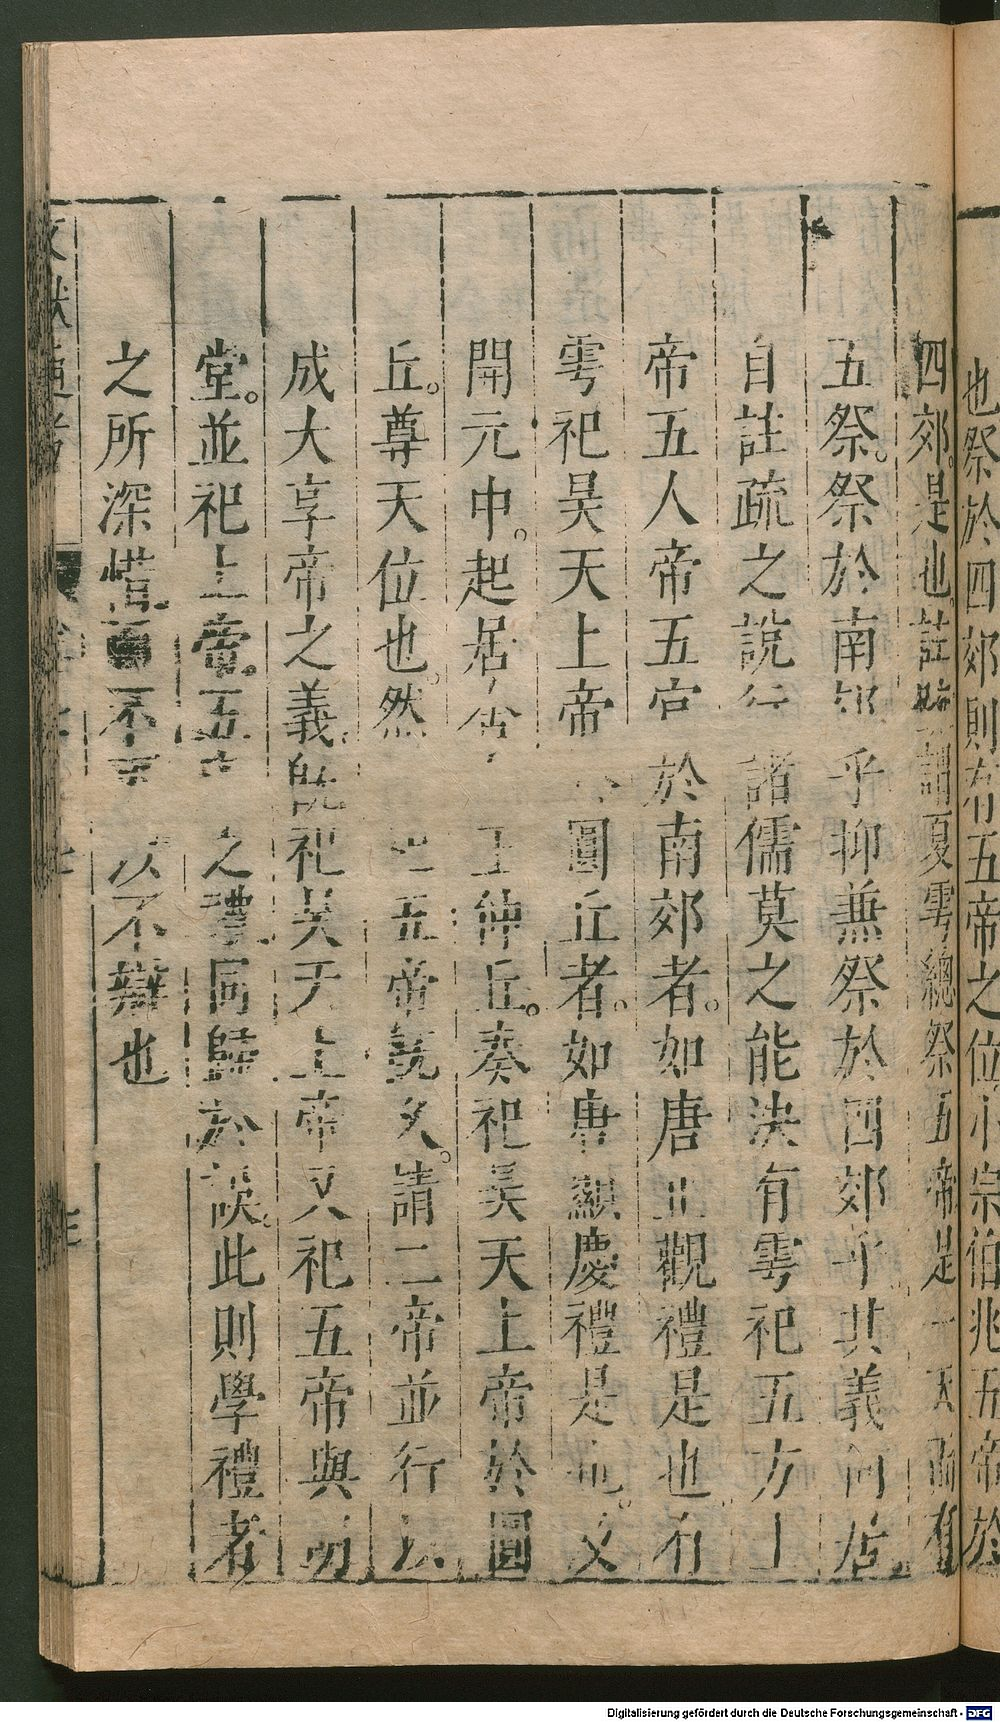 也祭於四郊則有五帝之位小宗伯兆五帝於
四郊是也註疏謂夏雩總祭五帝是一天而有
五祭祭於南郊乎抑兼祭於四郊乎其義何居
自註疏之說行諸儒莫之能決有雩祀五方上
帝五人帝五官於南郊者如唐正觀禮是也有
雩祀昊天上帝於圓丘者如唐顯慶禮是也又
開元中起居舍王仲丘奏祀昊天上帝於圓
丘尊天位也然雩祀五帝旣久請二帝並行以
成大享帝之義旣祀昊天上帝又祀五帝與明
堂並祀上帝五帝之禮同歸於誤此則學禮者
之所深惜而不可以不辯也
文獻通考
Digitalisierung gefördert durch die Deutsche Forschungsgemeinschaft - DFG